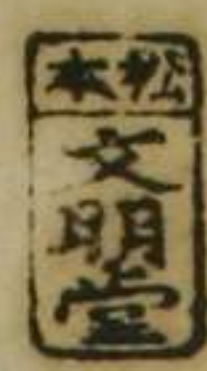 松本
文明堂